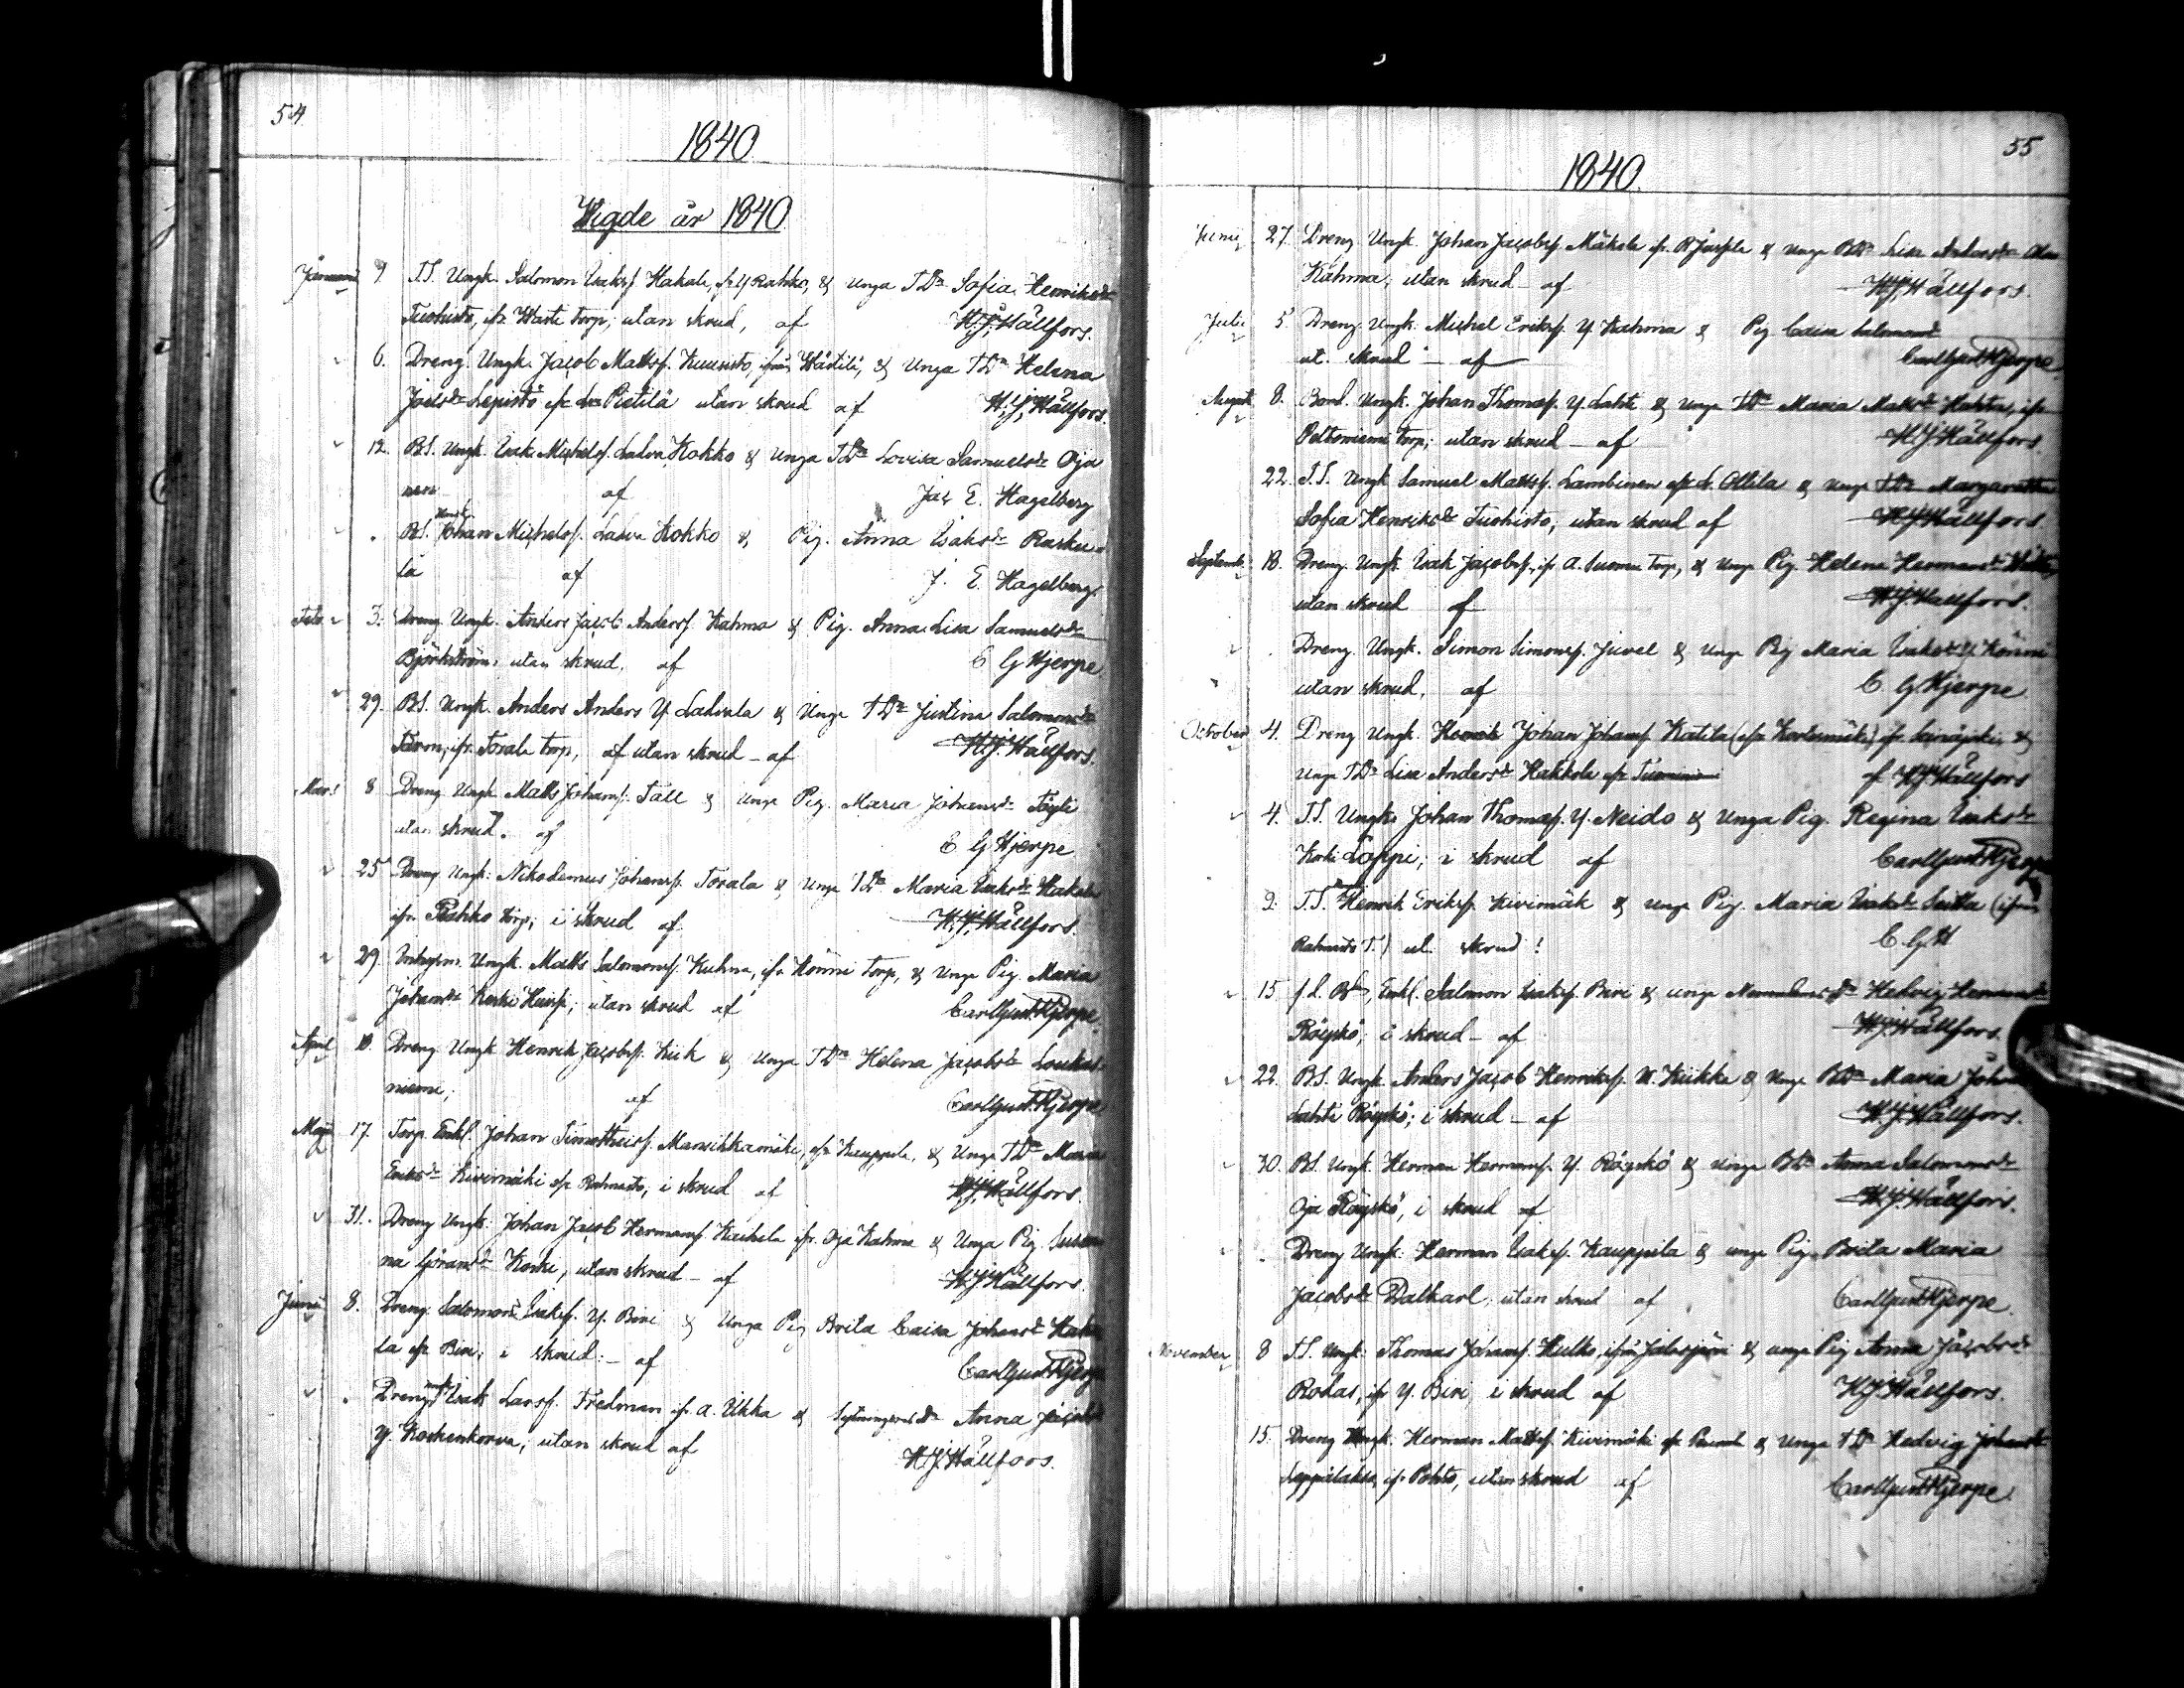 54
1840
Wigde år 1840.
Januarii 9. TS. Ungk. Salomon Isaksf. Hakala, fr. Y Rahko, & unga TDr Sofia Henriksdr
Tuohisto, ifr. torp; utan skrud, af H.J. Hällfors.
6. Dreng. Ungk. Jacob Mattsf. Kuusisto, ifrån Wästilä, & Unga TDr Helena
Joelsdr Lepistö ifr Pietilä utan skrud af H.J. Hällfors.
12. BS. Ungk. Isak Michelsf. Kokko & unga TDr Lovisa Samuelsdr Oja
nen af Jac E. Hagelberg
BS. Johan Michelsf. Kokko & Pig. Anna Isaksdr Rasku-
la af J. E. Hagelberg.
Feb 3. Dreng. Ungk. Anders Jacob Andersf. Kahma & Pig. Anna Lisa Samuelsdr
Björkström; utan skrud. af C G Hjerpe
29. BS. Ungk. Anders Anders Y. Lahvala & Unga TDr Justina Salomonsdr
ifr. Torala torp, af utan skrud - af H.J. Hällfors.
Mars 8 Dreng Ungk Matts Johansf. Täll & unga Pig. Maria Johansdr
utan skrud. af C G Hjerpe
25 Dreng Ungk: Nikodemus Johansf. Torala & Unga TDr Maria Isaksdr Hakala
ifr. torp; i skrud af H.J. Hällfors.
29. Ungk. Matts Salomonsf. Kuhna, ifr Könni torp, & unga Pig. Maria
Johansdr Koski; utan skrud af Carl Gust. Hjerpe
April 10. Dreng Ungk Henrik Jacobsf. Kiik & Unga TDr Helena Jacobsdr Loukas-
niemi; af Carl Gust. Hjerpe
Maji 17. Torp. Enkl. Johan Timotheisf. Mansikkamäki, ifr Kauppila, & unga TDr Maria
Eriksdr Kivimäki ifr Rahnasto, i skrud af H.J. Hällfors.
31. Dreng Ungk: Johan Jacob Hermansf. ifr. Oja Kahma & Unga Pig. Susan
na Göransdr Koski, utan skrud - af H.J. Hällfors.
Junii 8. Dreng. Salomon Isaksf. Y. Biri & Unga Pig Brita Caisa Johansdr
la ifr Biri; i skrud: - af Carl Gust. Hjerpe
Dreng Isak Larsf. Fredman ifr. A. Ukka & Sytningsm Dr Anna Jacobsdr
Y. Koskenkorva; utan skrud af H.J. Hällfors.
55
1840.
Junii 27. Dreng Ungk. Johan Jacobsf. Mäkelä ifr. & unga BDr Lisa Andersdr
Kahma; utan skrud af H.J. Hällfors.
Julii 5. Dreng. Ungk. Michel Eriksf. Y. Kahma & Pig Caisa Salomonsdr
ut. skrud - af Carl Gust Hjerpe
August 8. Bond. Ungk. Johan Thomasf. Y. Lahti & Unga TDr Maria Mattsdr ifr
Peltoniemi torp; utan skrud - af H.J. Hällfors
22. TS. Ungk Samuel Mattsf. Lambinen ifr L. Ollila & unga TDr Margaretha
Sofia Henriksdr Tuohisto, utan skrud af H.J. Hällfors.
September 18. Dreng. Ungk. Isak Jacobsf. ifr A. torp, & unga Pig. Helena Hermansdr
utan skrud af H.J. Hällfors.
Dreng. Ungk. Simon Simonsf. Juvel & unga Pig Maria Isaksdr Y Könni
utan skrud. af C G Hjerpe
October 4. Dreng Ungk. Henrik Johan Johansf. Katila (ifr Koskimäki) ifr &
unga TDr Lisa Andersdr Hakkola ifr af H.J. Hällfors
4. TS. Ungk. Johan Thomasf. Y. Neido & Unga Pig. Regina Isaksdr
Koski Loppi; i skrud af Carl Gust Hjerpe
9. TS. Henrik Eriksf. Kivimäk & unga Pig. Maria Isaksdr (ifrån
Rahnasto T.) ut. skrud! C. G. H
15 f.d. Enkl. Salomon Isaksf. Biri & unga Hedvig Hermansdr
Röyskö; i skrud - af H.J. Hällfors.
22. BS. Ungk. Anders Jacob Henriksf. N. Kiikka & Unga BDr Maria
Lahti Röyskö; i skrud - af H.J. Hällfors.
30. BS. Ungk. Herman Hermansf. Y. Röyskö & unga BDr Anna Salomonsdr
Oja Röyskö, i skrud af H.J. Hällfors.
Dreng Ungk: Herman Isaksf. Kauppila & unga Pig. Brita Maria
Jacobsdr Dalkarl; utan skrud af Carl Gust Hjerpe.
November 8 TS. Ungk: Thomas Johansf. Hulko, ifrån Jalasjärvi & unga Pig Anna Jacobsdr
Rodas, ifr Y. Biri, i skrud af H.J. Hällfors.
15. Dreng Ungk. Herman Mattsf. Kivimäki ifr & Unga TDr Hedvig Johansdr
Leppälaksi, ifr Pohto, utan skrud af Carl Gust Hjerpe.